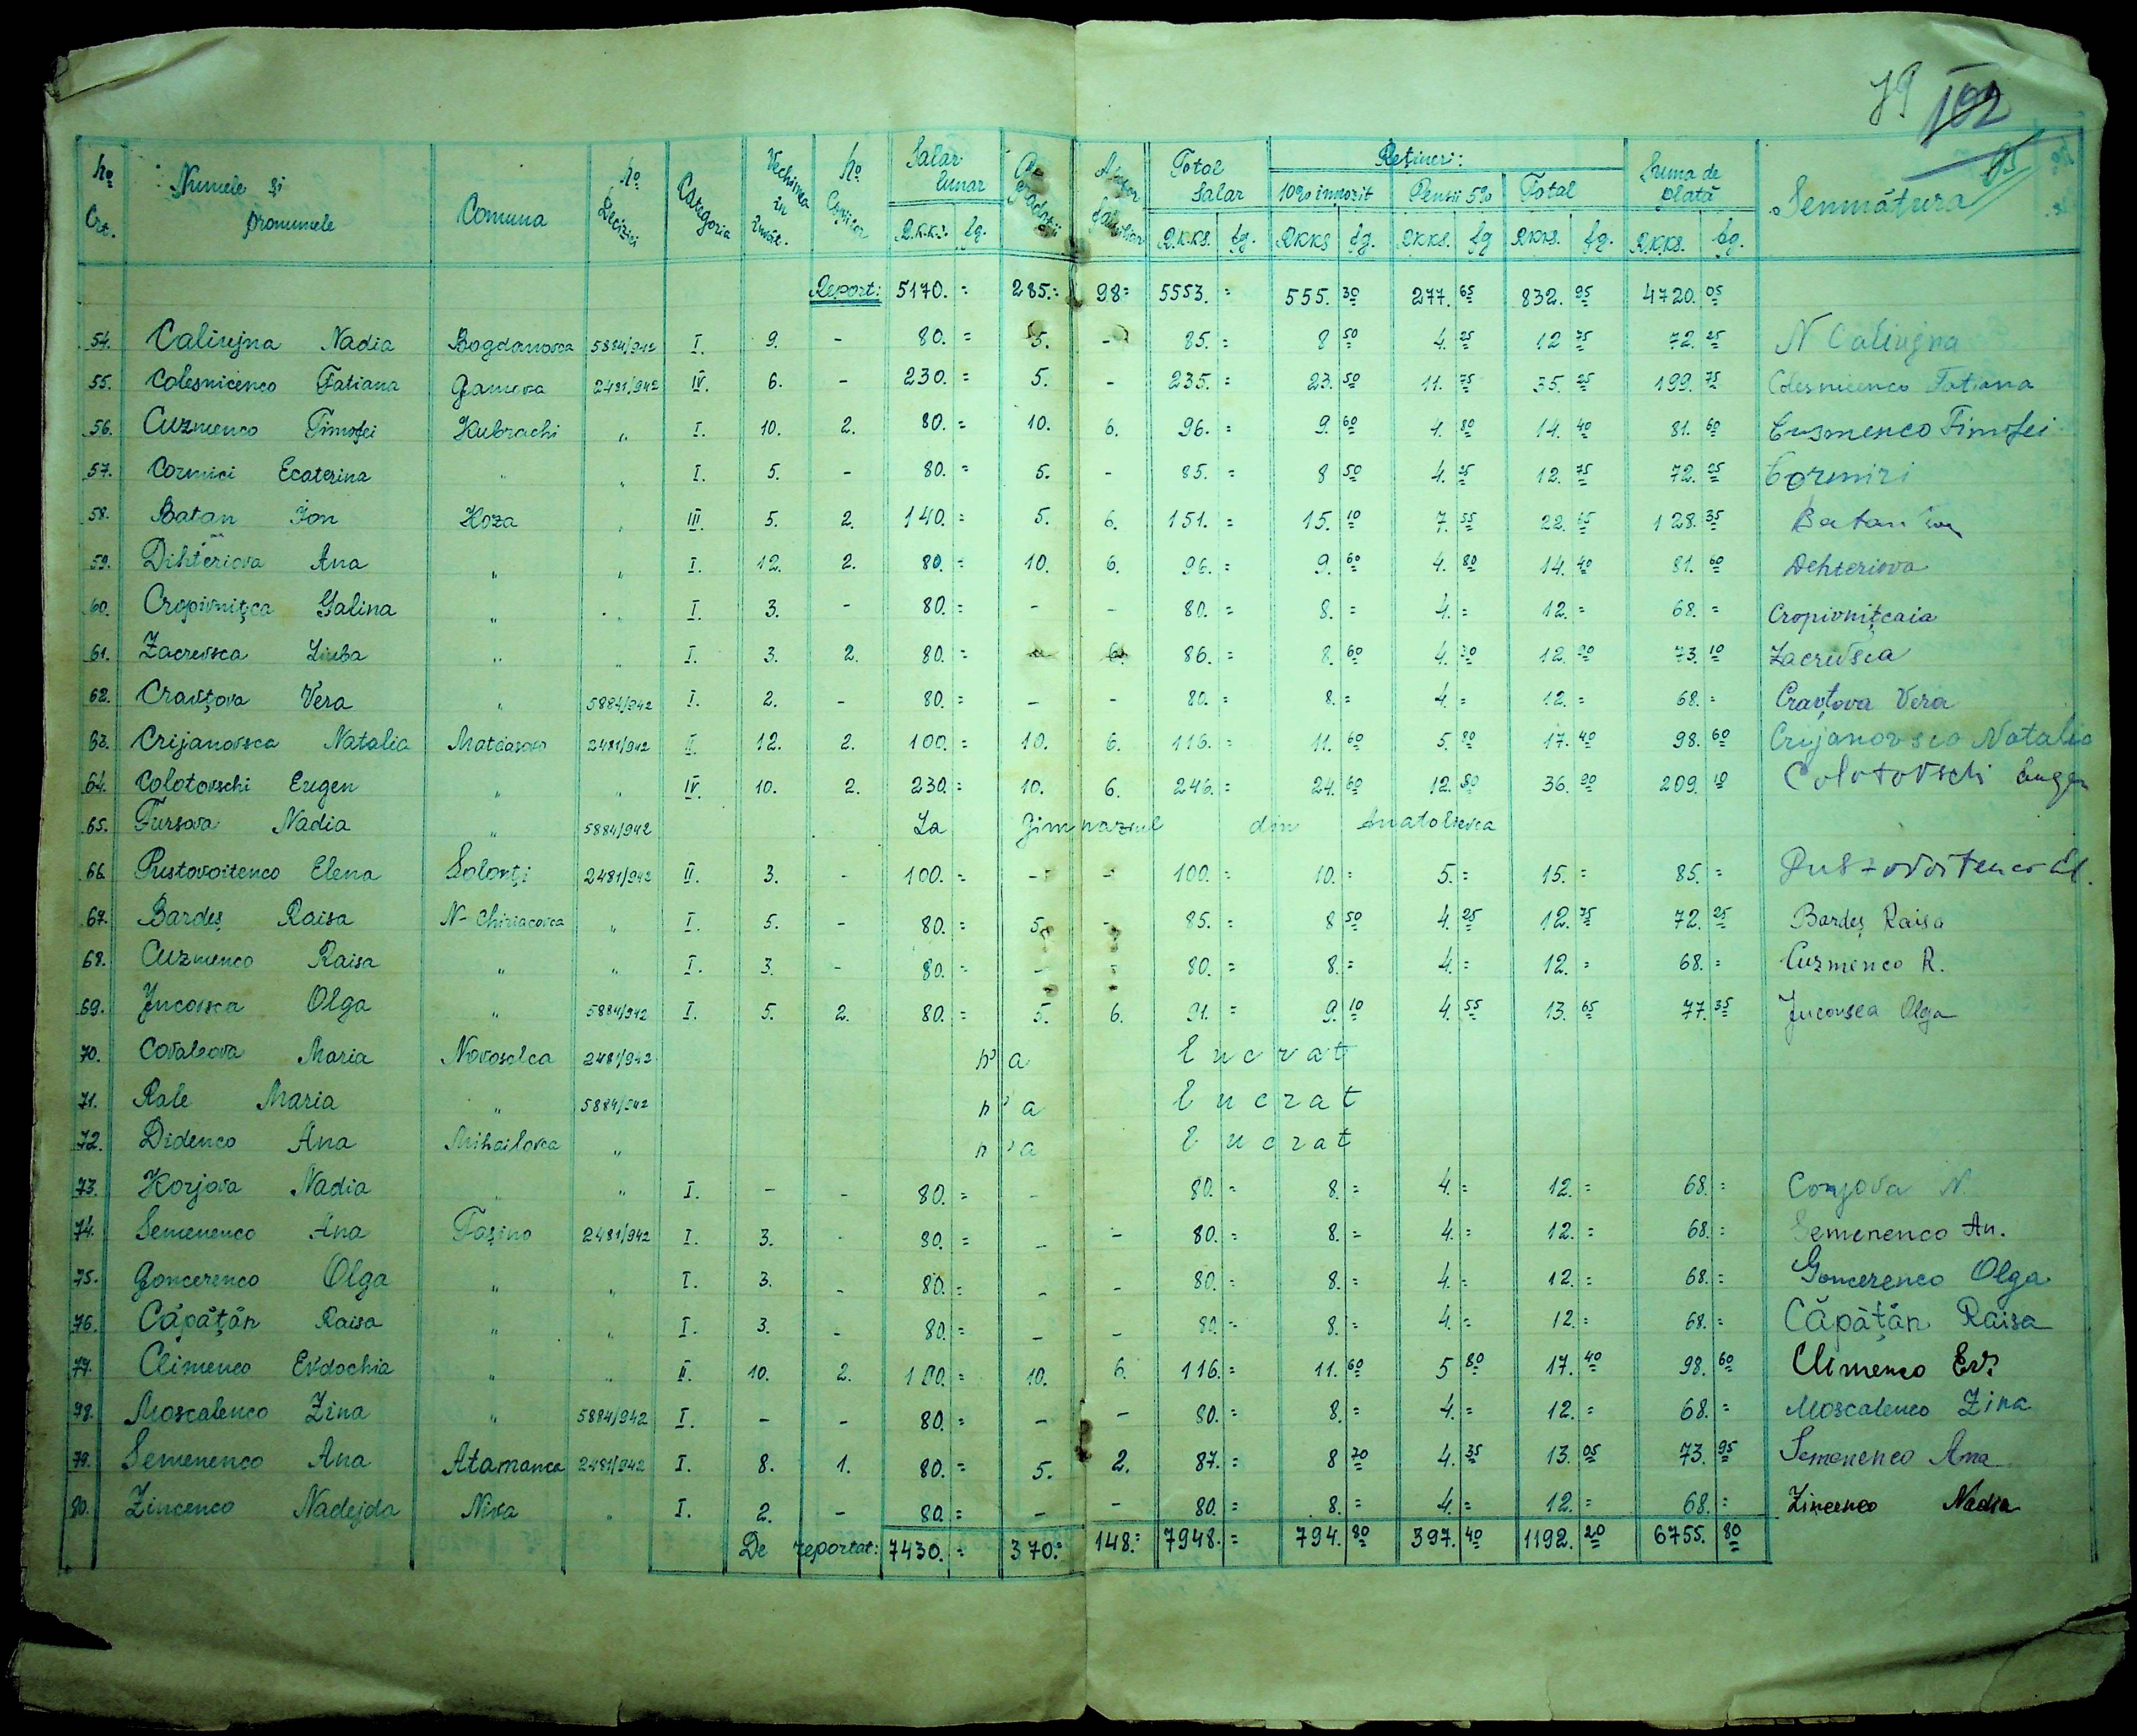 79 102
95
No Crt. Numele și pronumele Comuna No Deciziei Categoria Vechimea în învăț. No Copiilor Salar lunar Gradații Ajutor familiar Total Salar Rețineri: Suma de plată Semnătura
10% impozit Pensii 5% Total
R.K.K.S. fg. R.K.K.S. fg. RKKS fg. RKKS. fg RKKS. fg. RKKS. fg.
Report: 5170.= 285.= 98= 5553.= 555.30 277.65 832.95 4720.05
54. Caliujna Nadia Bogdanovca 5884/942 I. 9. - 80.= 5. - 85.= 8 50 4.25 12 75 72.25 N Caliujna
55. Colesnicenco Tatiana Gamova 2481/942 IV. 6. - 230.= 5. - 235.= 23.50 11.75 35.25 199.75 Colesnicenco Tatiana
56. Cuzmenco Timofei Kubrachi " I. 10. 2. 80.= 10. 6. 96.= 9.60 4.80 14.40 81.60 Cuzmenco Timofei
57. Cormici Ecaterina " " I. 5. - 80.= 5. - 85.= 8 50 4.25 12.75 72.25 Cormici
58. Batan Ion Koza " III. 5. 2. 140.= 5. 6. 151.= 15.10 7.55 22.65 128.35 Batan Ion
59. Dihteriova Ana " " I. 12. 2. 80.= 10. 6. 96.= 9.60 4.80 14.40 81.60 Dehteriova
60. Cropivnițca Galina " " I 3. - 80.= - - 80.= 8.= 4.= 12.= 68.= Cropivnițcaia
61. Zacrevsca Liuba " " I. 3. 2. 80.= - 6. 86.= 8.60 4.30 12.90 73.10 Zacrevsca
62. Cravțova Vera " 5884/942 I. 2. - 80.= - - 80.= 8.= 4.= 12.= 68.= Cravțova Vera
63. Crijanovsca Natalia Matiasovo 2481/942 II. 12. 2. 100.= 10. 6. 116.= 11.60 5.80 17.40 98.60 Crijanovsca Natalia
64. Colotovschi Eugen " " IV. 10. 2. 230.= 10. 6. 246.= 24.60 12.30 36.90 209.10 Colotovschi Eugen
65. Fursova Nadia " 5884/942 La gimnaziul din Anatolievca
66. Pustovoitenco Elena Solonți 2481/942 II. 3. - 100.= - - 100.= 10.= 5.= 15.= 85.= Pustovoitenco El.
67. Bardeș Raisa N-Chiriacovca " I. 5. - 80.= 5. - 85.= 8 50 4.25 12.75 72.25 Bardeș Raisa
68. Cuzmenco Raisa " " I. 3. - 80.= - - 80.= 8.= 4.= 12.= 68.= Cuzmenco R.
69. Jucovsca Olga " 5884/942 I. 5. 2. 80.= 5. 6. 91.= 9.10 4.55 13.65 77.35 Jucovsca Olga
70. Covaliova Maria Novoselca 2481/942 n'a lucrat
71. Rale Maria " 5884/942 n'a lucrat
72. Didenco Ana Mihailovca " n'a lucrat
73. Korjova Nadia " " I. - - 80.= - 80.= 8.= 4.= 12.= 68.= Corjova N.
74. Semenenco Ana Tașino 2481/942 I. 3. - 80.= - - 80.= 8.= 4.= 12.= 68.= Semenenco An.
75. Goncerenco Olga " " I. 3. - 80.= - - 80.= 8.= 4.= 12.= 68.= Goncerenco Olga
76. Căpățăn Raisa " " I. 3. - 80.= - - 80.= 8.= 4.= 12.= 68.= Căpățăn Raisa
77. Climenco Evdochia " " II. 10. 2. 100.= 10. 6. 116.= 11.60 5 80 17.40 98.60 Climenco Ev.
78. Moscalenco Zina " 5884/942 I. - - 80.= - - 80.= 8.= 4.= 12.= 68.= Moscalenco Zina
79. Semenenco Ana Atamanca 2481/942 I. 8. 1. 80.= 5. 2. 87.= 8 70 4.35 13.05 73.95 Semenenco Ana
80. Zincenco Nadejda Niva " I. 2. - 80.= - - 80.= 8.= 4.= 12.= 68.= Zincenco Nadia
De reportat: 7430.= 370.= 148.= 7948.= 794.80 397.40 1192.20 6755.80